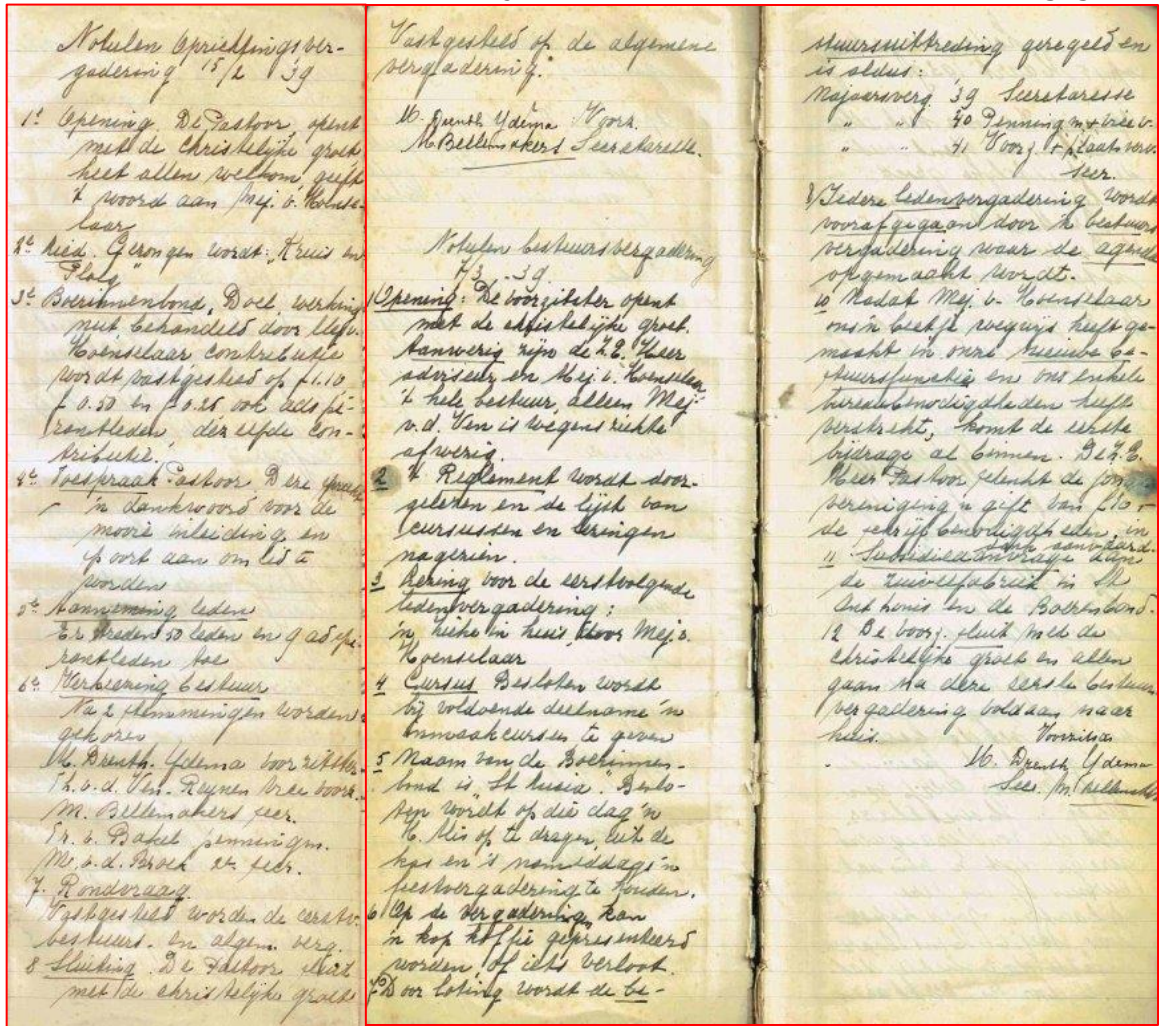 Notulen Oprichtingsver-
gadering 15/2 '39
1e Opening. De Pastoor opent
met de christelijke groet
heet allen welkom, geeft
't woord aan Mej. v. Hoense-
laar
2e Lied. Gezongen wordt: "Kruis en
Ploeg"
3e Boerinnenbond, Doel, werking
nut, behandeld door Mej. v.
Hoenselaar contributie
wordt vastgesteld op f 1.10
f 0.50 en f 0.25 ook adspi-
rantleden, dezelfde con-
tributie.
4e Toespraak Pastoor Deze spreekt
'n dankwoord voor de
mooie inleiding en
spoort aan om lid te
worden
5e Aanneming leden
Er treden 50 leden en 9 adspi-
rantleden toe
6e Verkiezing bestuur
Na 2 stemmingen worden
gekozen
M. Drenth-Ydema voorzitster
Th. v.d. Ven-Reynen vice voorz.
M. Bellemakers secr.
Tr. v. Bakel penningm.
M. v.d. Broek 2e secr.
7. Rondvraag
Vastgesteld worden de eerstv.
bestuurs- en algem. verg.
8 Sluiting. De Pastoor sluit
met de christelijke groet
Vastgesteld op de algemene
vergadering.
M. Drenth Ydema Voorz.
M Bellemakers Secretaresse.
Notulen bestuursvergadering
7/3 - 39.
1 Opening: De voorzitster opent
met de christelijke groet.
Aanwezig zijn de Z.E. Heer
adviseur en Mej. v. Hoenselaar
't hele bestuur, alleen Mej
v.d. Ven is wegens ziekte
afwezig.
2 't Reglement wordt door-
gelezen en de lijst van
cursussen en lezingen
nagezien.
3 Lezing voor de eerstvolgende
ledenvergadering:
'n zieke in huis, door Mej. v.
Hoenselaar
4 Cursus Besloten wordt
bij voldoende deelname 'n
inmaakcursus te geven
5 Naam van de Boerinnen-
bond is "St Lusia". Beslo-
ten wordt op die dag 'n
H. Mis op te dragen, uit de
kas en 's namiddags 'n
feestvergadering te houden.
6 Op de vergadering kan
'n kop koffie gepresenteerd
worden, of iets verloot.
7 Door loting wordt de be-
stuursuittreding geregeld en
is aldus:
Najaarsverg. '39 Secretaresse
" " 40 Penningm + vice v.
" " 41 Voorz. + plaatsverv.
secr.
8/ Iedere ledenvergadering wordt
voorafgegaan door 'n bestuurs
vergadering waar de agenda
opgemaakt wordt.
10 Nadat Mej. v. Hoenselaar
ons 'n beetje wegwijs heeft ge-
maakt in onze nieuwe be-
stuursfunctie en ons enkele
bureaubenodigdheden heeft
verstrekt, komt de eerste
bijdrage al binnen. De Z.E.
Heer Pastoor schenkt de jonge
vereniging 'n gift van f 10,-
de schrijfbenodigdheden in
11 Subsidieaanvrage aan
de zuivelfabriek in St
Anthonis en de Boerenbond.
12 De voorz. sluit met de
christelijke groet en allen
gaan na deze eerste bestuurs
vergadering voldaan naar
huis. Voorzitster
M. Drenth Ydema
Secr. M. Bellemakers